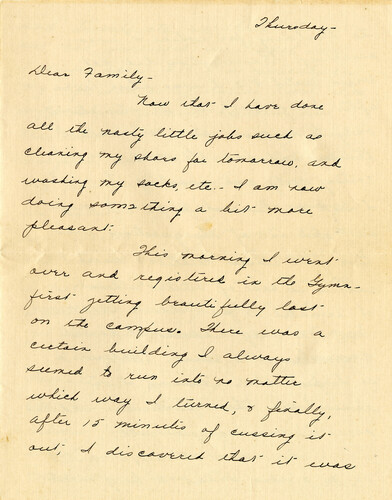 Thursday-
Dear Family-
Now that I have done
all the nasty little jobs such as
cleaning my shoes for tomorrow, and
washing my socks, etc.- I am now
doing something a bit more
pleasant.
This morning I went
over and registered in the Gymn-
first getting beautifully lost
on the campus. There was a
certain building I always
seemed to run into no matter
which way I turned, & finally,
after 15 minutes of cussing it
out, I discovered that it was